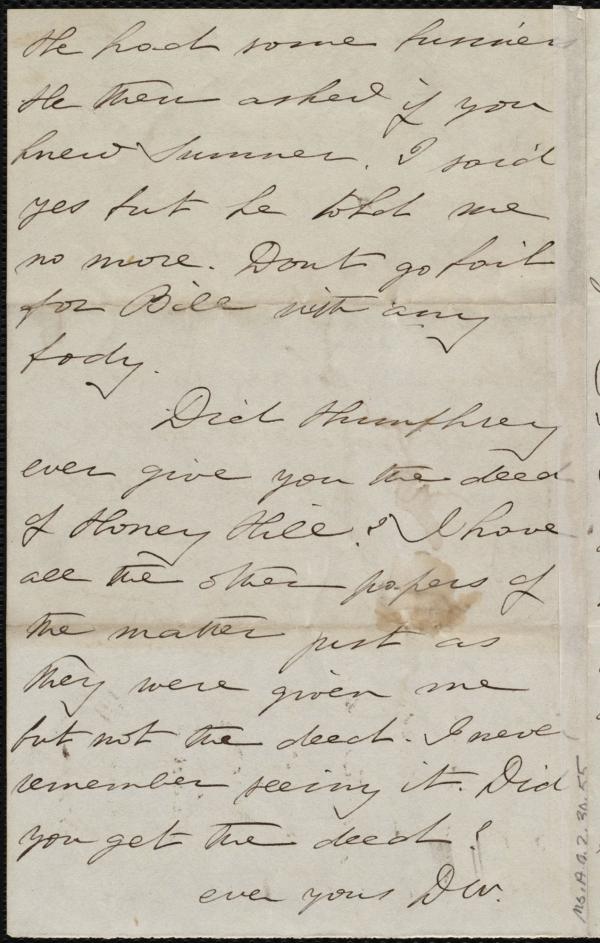 He had some business
He then asked if you
knew Sumner. I said
yes but he told me
no more. Dont go bail
for Bill with any
body.
Did Humphrey
ever give you the deed
of Honey Hill? I have
all the other papers of
the matter just as
they were given me
but not the deed. I never
remember seeing it. Did
you get the deed?
ever yours DW.
Ms. A. 9. 2. 30. 55